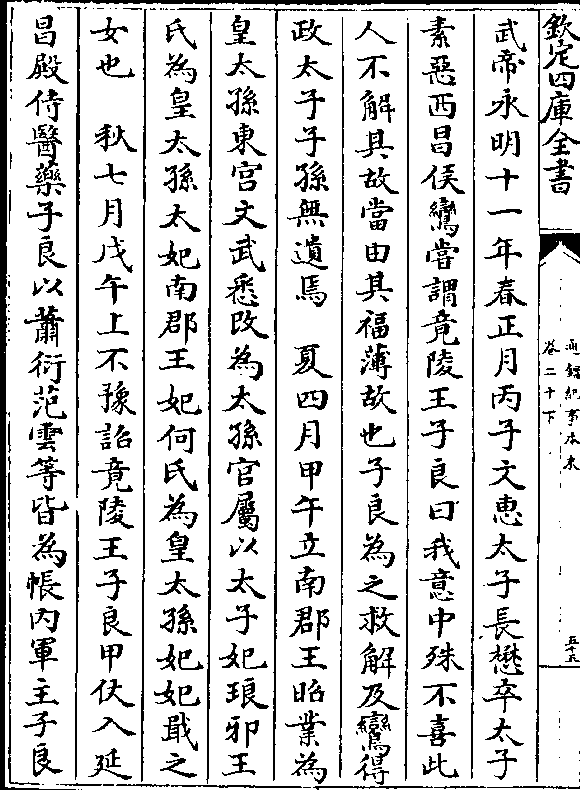 欽定四庫全書
通鑑紀事本末
卷二十下
五十五
武帝永明十一年春正月丙子文惠太子長懋卒太子
素惡西昌侯鸞嘗謂竟陵王子良曰我意中殊不喜此
人不解其故當由其福薄故也子良為之救解及鸞得
政太子子孫無遺焉　夏四月甲午立南郡王昭業為
皇太孫東宫文武悉改為太孫官屬以太子妃琅邪王
氏為皇太孫太妃南郡王妃何氏為皇太孫妃妃戢之
女也　秋七月戊午上不豫詔竟陵王子良甲仗入延
昌殿侍醫藥子良以蕭衍范雲等皆為帳内軍主子良